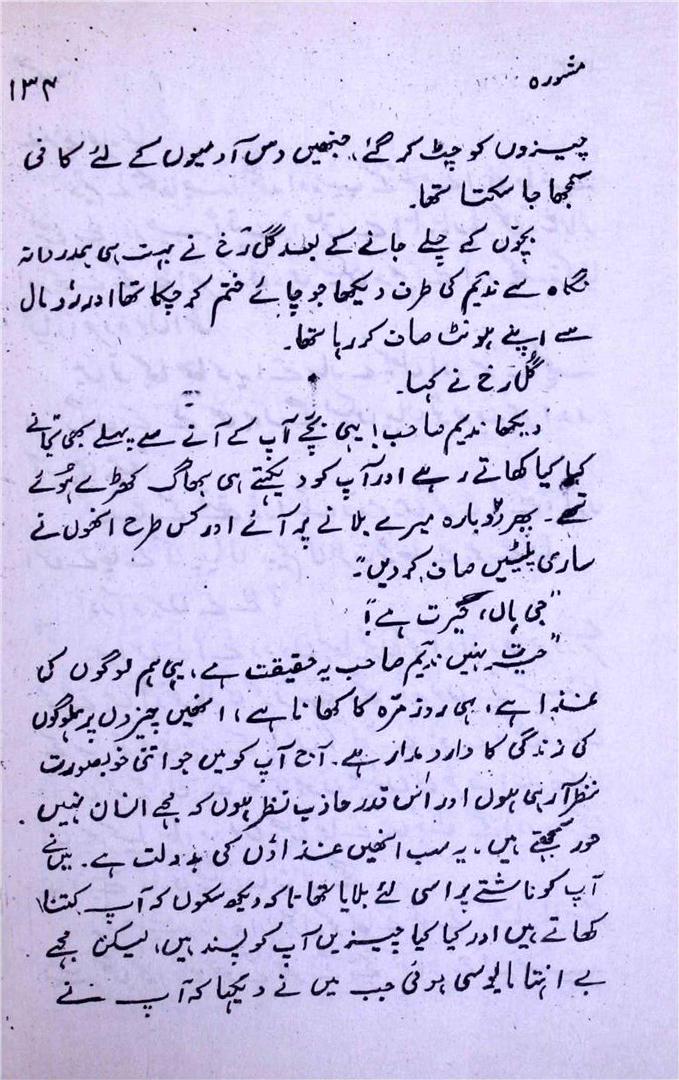 مشورہ
۱۳۴
چیزوں کو چٹ کر گئے، جنھیں دس آدمیوں کے لئے کافی
سمجھا جا سکتا تھا۔
بچوں کے چلے جانے کے بعد گل رخ نے بہت ہی ہمدردانہ
نگاہ سے ندیم کی طرف دیکھا جو چائے ختم کر چکا تھا اور رومال
سے اپنے ہونٹ صاف کر رہا تھا۔
گل رخ نے کہا۔
دیکھا ندیم صاحب! یہی بچے آپ کے آنے سے پہلے بھی نجانے
کیا کیا کھاتے رہے اور آپ کو دیکھتے ہی بھاگ کھڑے ہوئے
تھے۔ پھر دوبارہ میرے بلانے پر آئے اور کس طرح انھوں نے
ساری پلیٹیں صاف کر دیں"۔
"جی ہاں، حیرت ہے"!
"حیرت نہیں ندیم صاحب یہ حقیقت ہے، یہی ہم لوگوں کی
غذا ہے، یہی روز مرّہ کا کھانا ہے، انھیں چیزوں پر ہملوگوں
کی زندگی کا دارومدار ہے۔ آج آپ کو میں جو اتنی خوبصورت
نظر آ رہی ہوں اور اس قدر جاذب نظر ہوں کہ مجھے انسان نہیں
حور سمجھتے ہیں۔ یہ سب انھیں غذاؤں کی بدولت ہے۔ میں نے
آپ کو ناشتے پر اسی لئے بلایا تھا تاکہ دیکھ سکوں کہ آپ کتنا
کھاتے ہیں اور کیا کیا چیزیں آپ کو پسند ہیں، لیکن مجھے
بے انتہا مایوسی ہوئی جب میں نے دیکھا کہ آپ نے